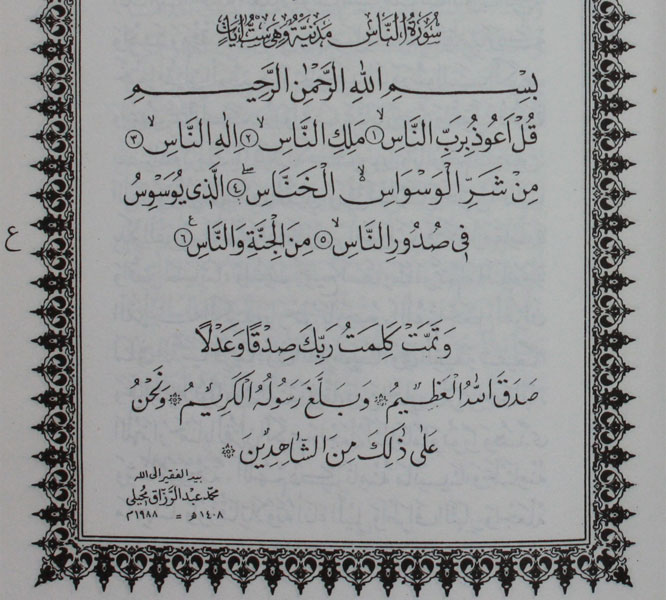 سُورَةُ النَّاسِ مَدَنِيَّةٌ وَهِيَ سِتُّ اٰيَاتٍ
بِسْمِ اللّٰهِ الرَّحْمٰنِ الرَّحِيمِ
قُلْ اَعُوذُ بِرَبِّ النَّاسِۙ ﴿١﴾ مَلِكِ النَّاسِۙ ﴿٢﴾ اِلٰهِ النَّاسِۙ ﴿٣﴾
مِنْ شَرِّ الْوَسْوَاسِ الْخَنَّاسِۖ ﴿٤﴾ اَلَّذ۪ي يُوَسْوِسُ
ف۪ي صُدُورِ النَّاسِۙ ﴿٥﴾ مِنَ الْجِنَّةِ وَالنَّاسِ ﴿٦﴾
ع
وَتَمَّتْ كَلِمَتُ رَبِّكَ صِدْقًا وَعَدْلًا
صَدَقَ اللّٰهُ الْعَظِيمُ وَبَلَّغَ رَسُولُهُ الْكَرِيمُ وَنَحْنُ
عَلٰى ذٰلِكَ مِنَ الشَّاهِدِينَ
بيد الفقير الى الله
محمد عبد الرزاق
١٤٠٨ هـ = ١٩٨٨ م